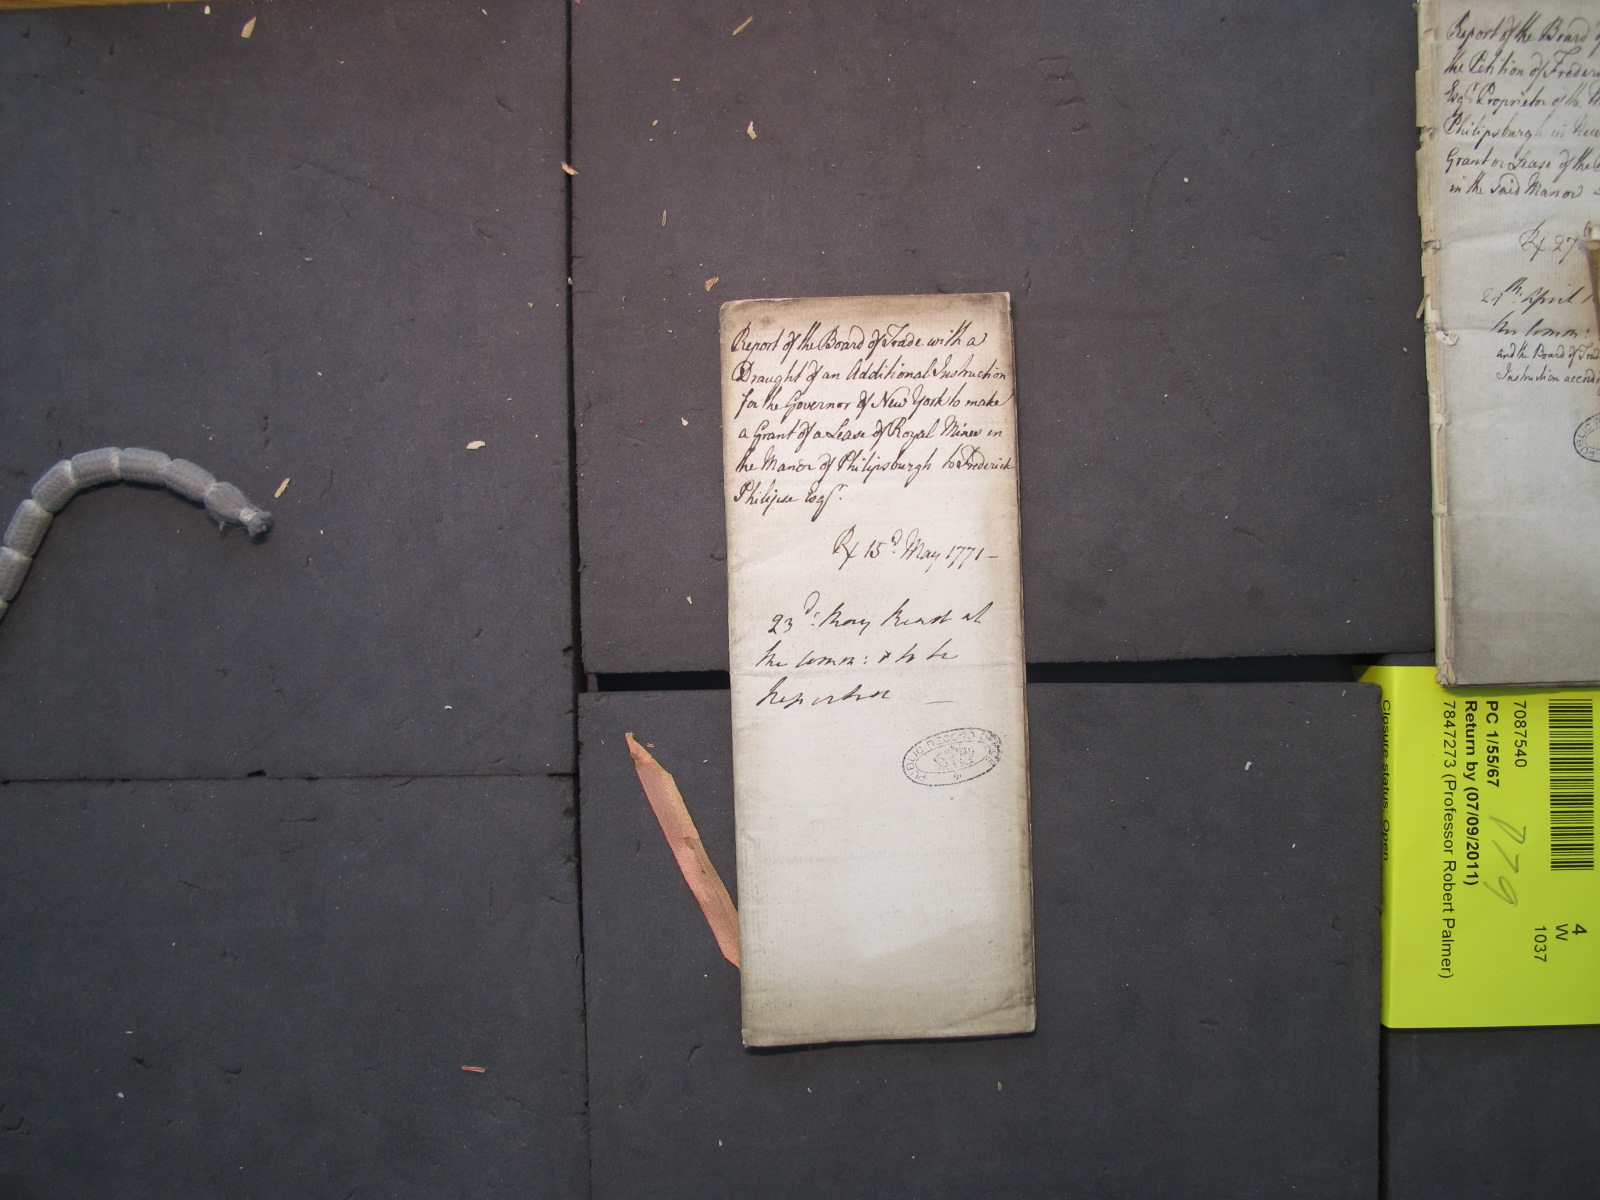 Report of the Board of Trade with a
Draught of an Additional Instruction
for the Governor of New York to make
a Grant of a Lease of Royal Mines in
the Manor of Philipsburgh to Frederick
Philipse Esqr.
Rx 15d. May 1771 —
23d: May Read at
the Comm: & to be
Reported —
PUBLIC RECORD OFFICE
Report of the Board of
the Petition of Freder
Esqr. Proprietor of the
Philipsburgh in New
Grant or Lease of the
in the said Manor
Rx 27
April
the Comm:
and the Board of Trad
Instruction accordi
7087540
PC 1/55/67
Return by (07/09/2011)
7847273 (Professor Robert Palmer)
Closure status: Open
779
4
W
1037